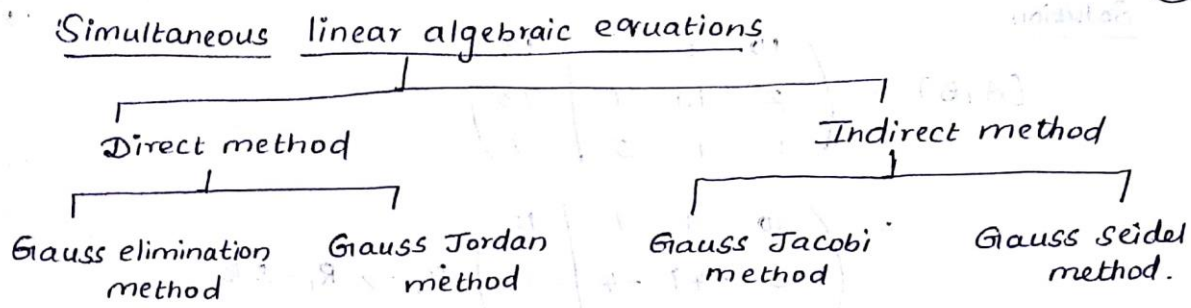 Simultaneous linear algebraic equations.
Direct method
Indirect method
Gauss elimination method
Gauss Jordan method
Gauss Jacobi method
Gauss Seidel method.